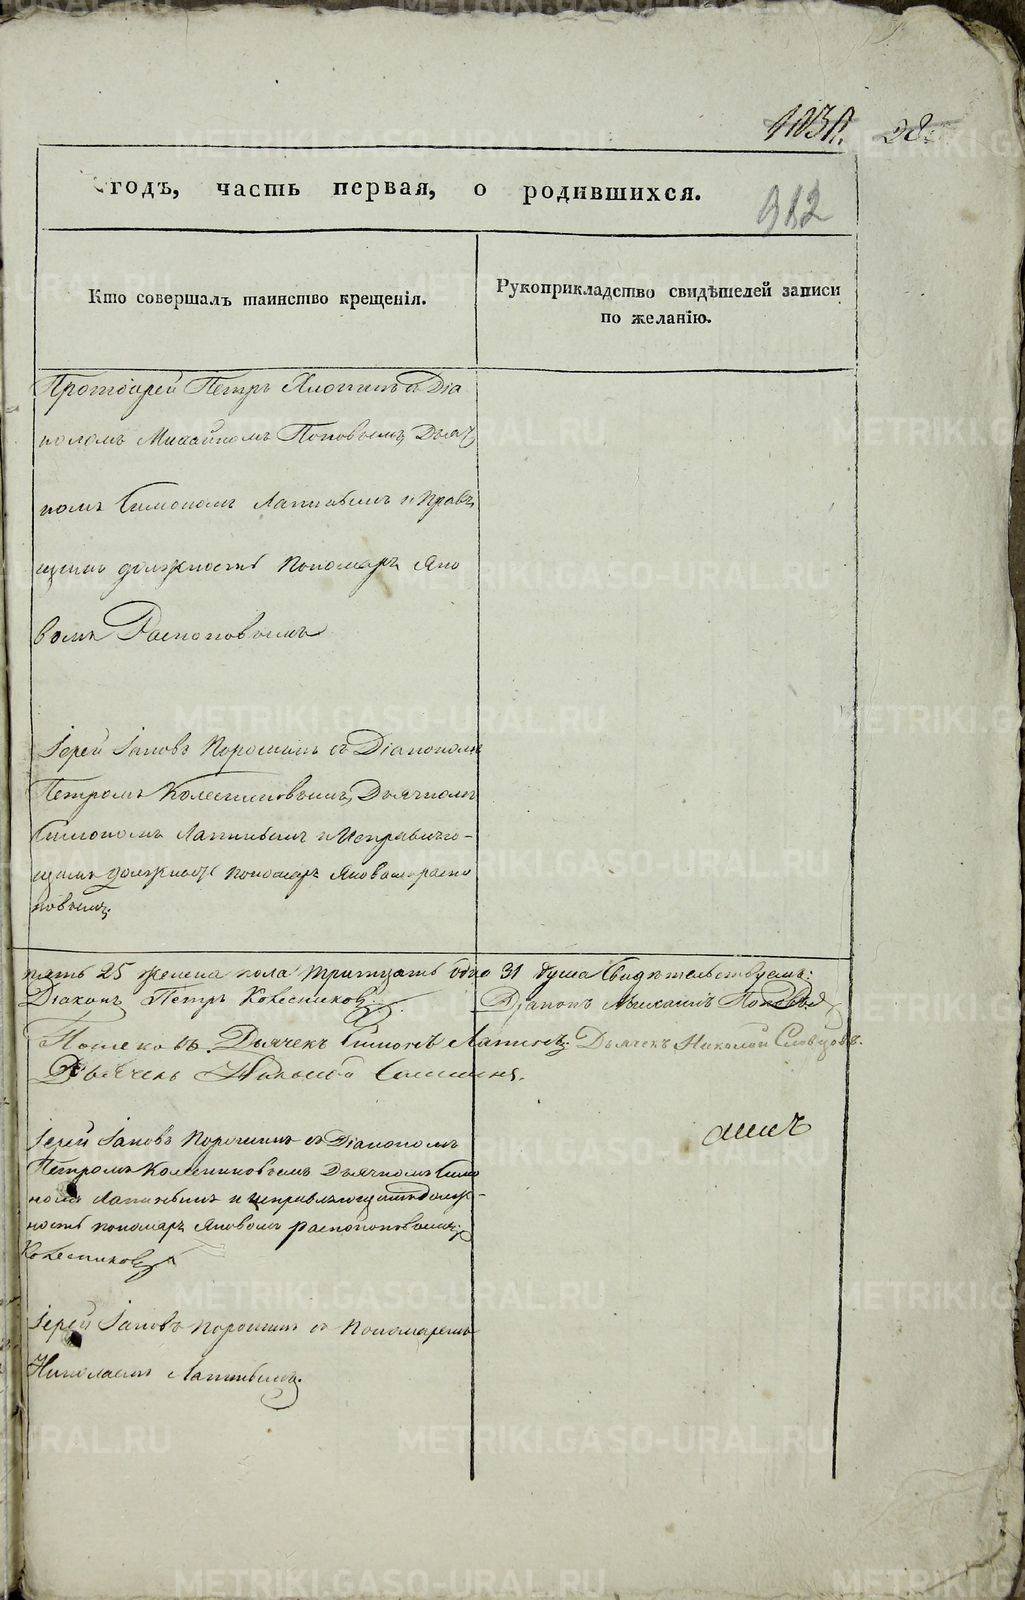 912
годъ, часть первая, о родившихся.
Кто совершалъ таинство крещенія.
Рукоприкладство свидѣтелей записи
по желанію.
Протоіерей Петръ съ Діа
кономъ Михайломъ Поповымъ Дьяч
комъ Симономъ Лапинымъ и Правя
щимъ должность Пономаря Яко
вомъ Распоповымъ
Іерей Іаковъ Порошинъ съ Діакономъ
Петромъ Колесниковымъ, Дьячкомъ
Симономъ Лапинымъ и Исправляю-
щимъ должность пономаря Яковомъ распо
повымъ.
пять 25 женска пола тритцать одно 31 душа Свидѣтельствуемъ:
Діаконъ Петръ Колесниковъ.
Діаконъ Михаилъ Поповъ
Дьячекъ Симонъ Лапинъ. Дьячекъ Николай Словцовъ.
Дьячекъ
Іерей Іаковъ Порошинъ съ Діакономъ
Петромъ Колесниковымъ Дьячкомъ Симо
номъ Лапинымъ и исправляющимъ долж-
ность пономаря Яковомъ распоповымъ
Колесниковъ
Іерей Іаковъ Порошинъ съ Пономаремъ
Николаемъ Лапинымъ.
METRIKI.GASO-URAL.RU